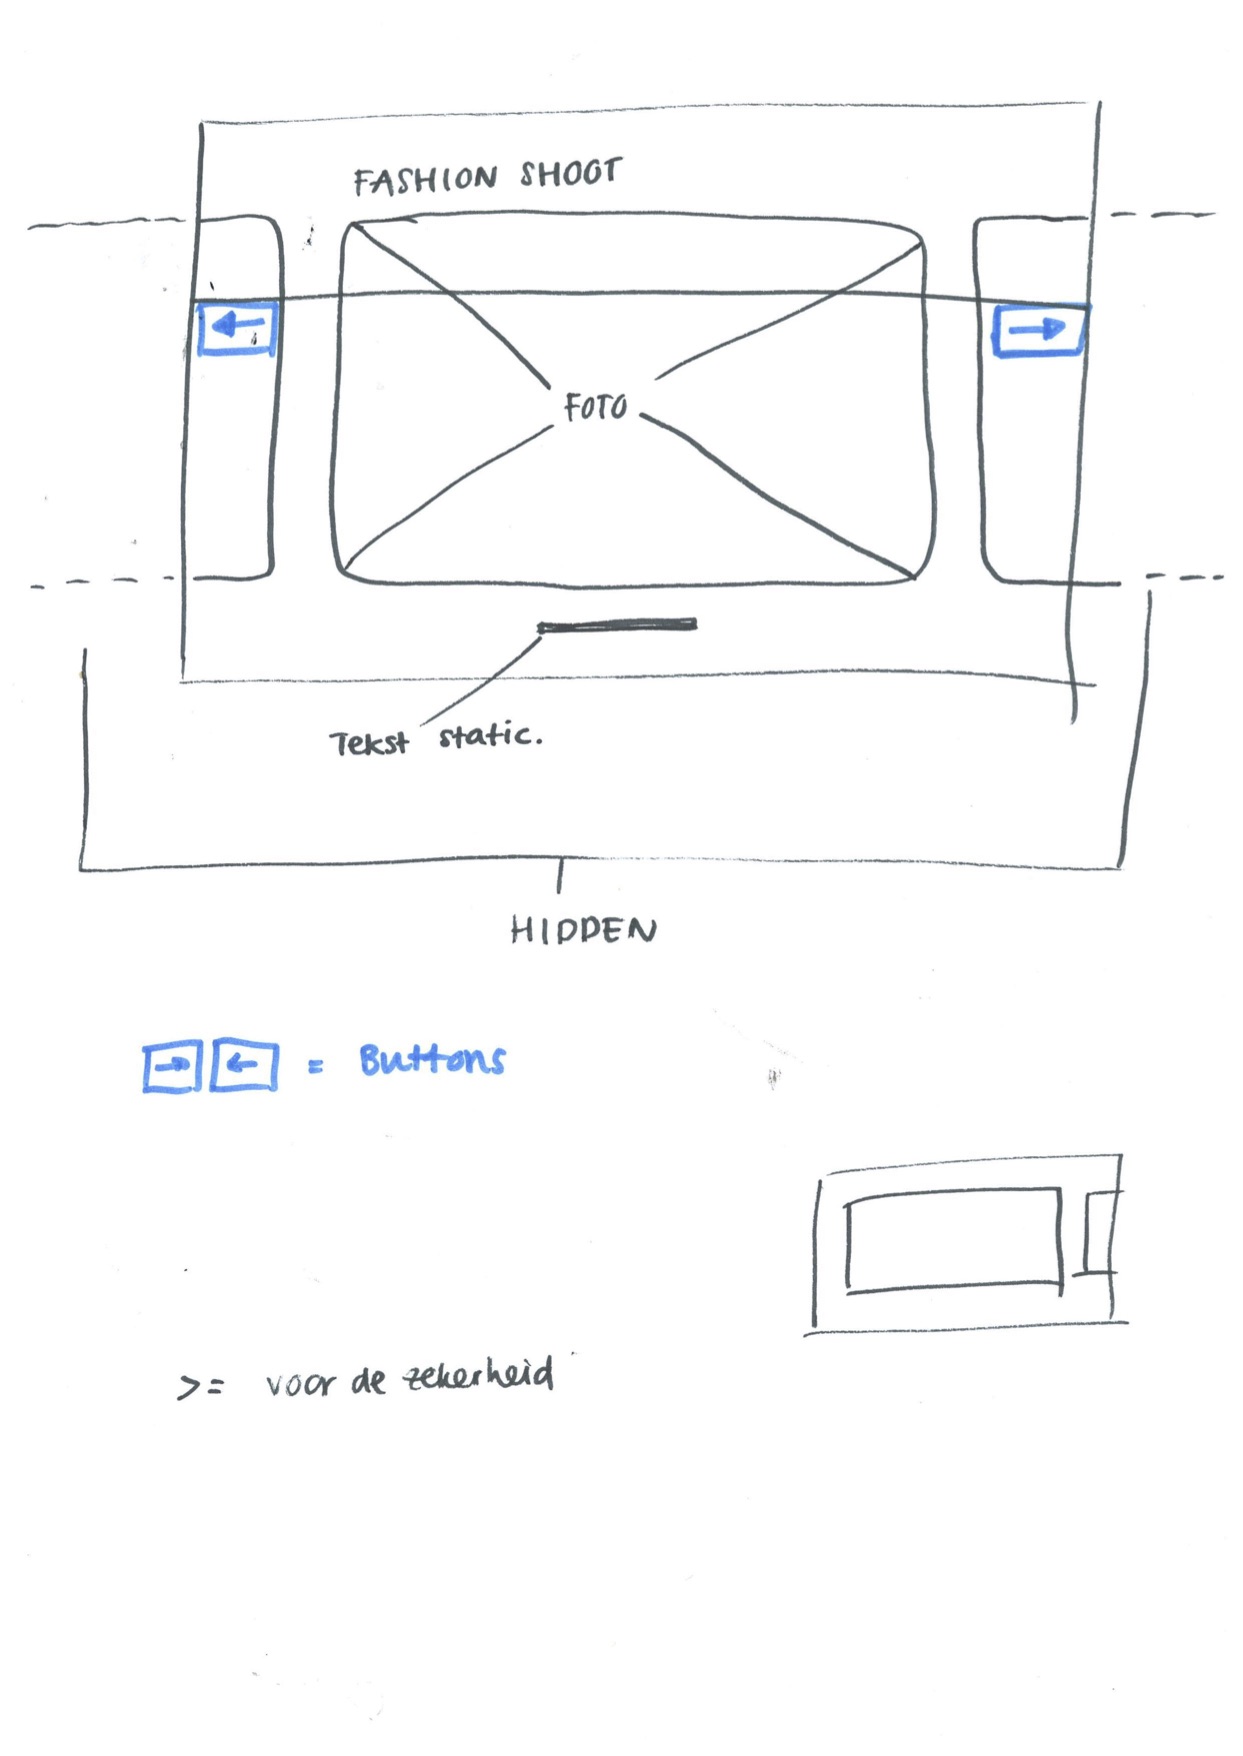 FASHION SHOOT
←
→
FOTO
Tekst static.
HIDDEN
→ ← = Buttons
>= voor de zekerheid